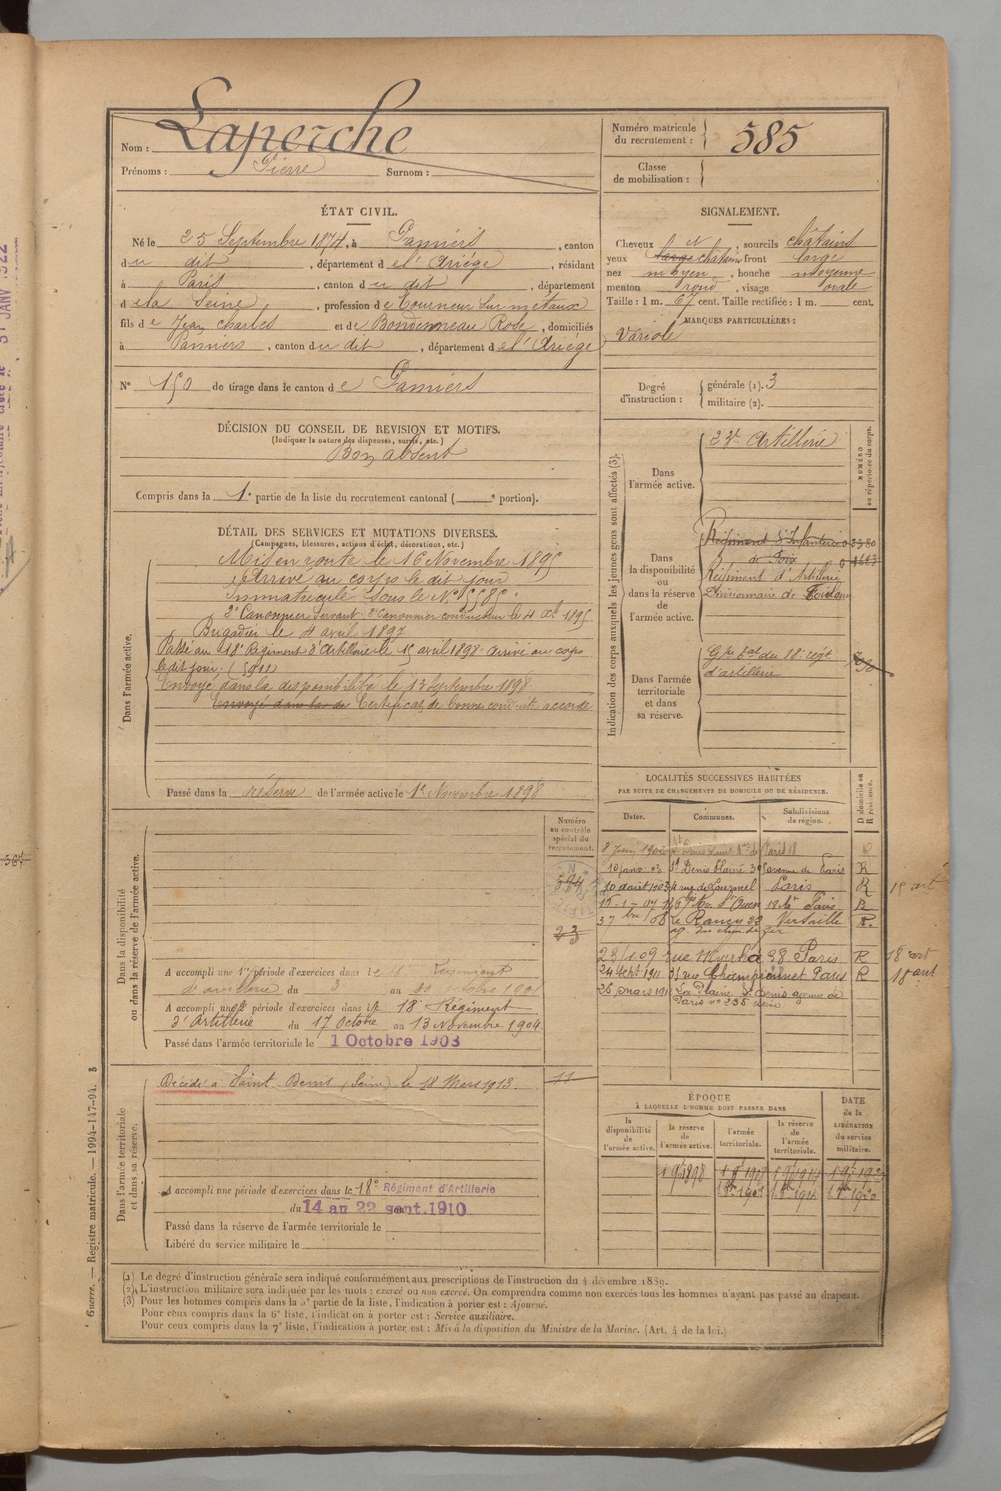 Nom : Laperche
Prénoms : Pierre Surnom :
Numéro matricule du recrutement : 585
Classe de mobilisation :
ÉTAT CIVIL.
Né le 25 Septembre 1874, à Pamiers, canton
du dit, département de l'Ariége, résidant
à Paris, canton du dit, département
de la Seine, profession de Tourneur sur métaux
fils de Jean Charles et de Rose, domiciliés
à Pamiers, canton du dit, département de l'Ariége
N° 150 de tirage dans le canton de Pamiers
SIGNALEMENT.
Cheveux et, sourcils châtains
yeux châtains front large
nez moyen, bouche moyenne
menton rond, visage ovale
Taille : 1 m. 67 cent. Taille rectifiée : 1 m. cent.
MARQUES PARTICULIÈRES :
Variole
Degré d'instruction : générale (1). 3
militaire (2).
DÉCISION DU CONSEIL DE REVISION ET MOTIFS.
(Indiquer la nature des dispenses, sursis, etc.)
Bon absent
Compris dans la 1e partie de la liste du recrutement cantonal ( e portion).
DÉTAIL DES SERVICES ET MUTATIONS DIVERSES.
(Campagnes, blessures, actions d'éclat, décorations, etc.)
Dans l'armée active.
Mis en route le 16 Novembre 1895
Arrivé au corps le dit jour
Immatriculé sous le N°
2e Canonnier servant. 2e Canonnier conducteur le 4 1895
Brigadier le 4 avril 1897
Passé au 18e Régiment d'Artillerie le 15 avril 1898. arrivé au corps
le dit jour.
Envoyé dans la disponibilité le 13 Septembre 1898
Certificat de bonne conduite accordé
Passé dans la réserve de l'armée active le 1er Novembre 1898
Indication des corps auxquels les jeunes gens sont affectés (3).
NUMÉRO au répertoire du corps.
Dans l'armée active.
23e Artillerie
Dans la disponibilité ou dans la réserve de l'armée active.
Régiment d'Infanterie
de Foix
Régiment d'Artillerie
Divisionnaire de
Dans l'armée territoriale et dans sa réserve.
du 18e régt
d'artillerie
LOCALITÉS SUCCESSIVES HABITÉES
PAR SUITE DE CHANGEMENTS DE DOMICILE OU DE RÉSIDENCE.
Dates. Communes. Subdivisions de région. D domicile ou R résidence.
8 Juin R
10 janv 03 St Denis avenue de Paris R
10 août 1903 4 rue de Paris R
Paris R
Le Raincy 22 Versailles R
rue Myrha 28 Paris R 18 art
24 Sept 1911 31 rue Championnet Paris R 18 art
26 mars La Plaine St Denis avenue de
Paris n° 235 Seine
Dans la disponibilité ou dans la réserve de l'armée active.
Numéro au contrôle spécial du recrutement.
594
23
A accompli une 1re période d'exercices dans le 18e Régiment
d'artillerie du 3 au 30 octobre 1901
A accompli une 2e période d'exercices dans le 18e Régiment
d'Artillerie du 17 Octobre au 13 Novembre 1904
Passé dans l'armée territoriale le 1 Octobre 1903
Dans l'armée territoriale et dans sa réserve.
Décédé à Saint Denis (Seine) le 18 Mars 1913
11
A accompli une période d'exercices dans le 18e Régiment d'Artillerie
du 14 au 22 sept. 1910
Passé dans la réserve de l'armée territoriale le
Libéré du service militaire le
ÉPOQUE
À LAQUELLE L'HOMME DOIT PASSER DANS
la disponibilité de l'armée active. la réserve de l'armée active. l'armée territoriale. la réserve de l'armée territoriale.
DATE de la LIBÉRATION du service militaire.
(1) Le degré d'instruction générale sera indiqué conformément aux prescriptions de l'instruction du 4 décembre 1889.
(2) L'instruction militaire sera indiquée par les mots : exercé ou non exercé. On comprendra comme non exercés tous les hommes n'ayant pas passé au drapeau.
(3) Pour les hommes compris dans la 5e partie de la liste, l'indication à porter est : Ajourné.
Pour ceux compris dans la 6e liste, l'indication à porter est : Service auxiliaire.
Pour ceux compris dans la 7e liste, l'indication à porter est : Mis à la disposition du Ministre de la Marine. (Art. 4 de la loi.)
Guerre. — Registre matricule. — 1994-147-94. 3